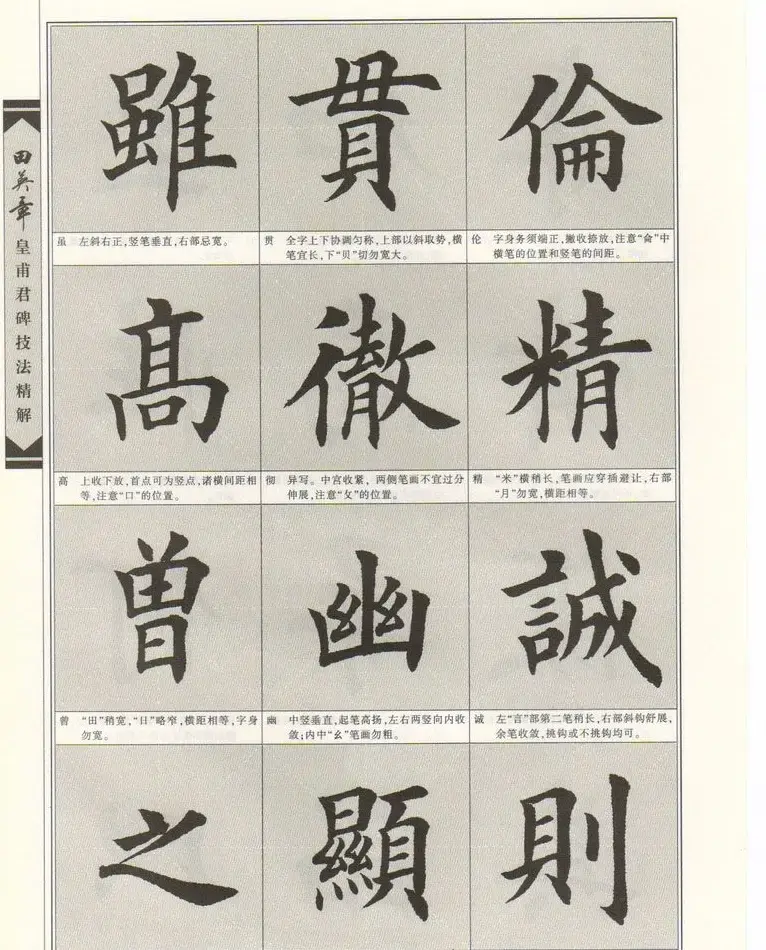 田英章
皇甫君碑技法精解
倫
伦 字身务须端正,撇收捺放,注意“侖”中
横笔的位置和竖笔的间距。
精
精 “米”横稍长,笔画应穿插避让,右部
“月”勿宽,横距相等。
誠
诚 左“言”部第二笔稍长,右部斜钩舒展,
余笔收敛,挑钩或不挑钩均可。
則
貫
贯 全字上下协调匀称,上部以斜取势,横
笔宜长,下“贝”切勿宽大。
徹
彻 异写。中宫收紧，两侧笔画不宜过分
伸展,注意“攵”的位置。
幽
幽 中竖垂直,起笔高扬,左右两竖向内收
敛;内中“幺”笔画勿粗。
顯
雖
虽 左斜右正,竖笔垂直,右部忌宽。
高
高 上收下放,首点可为竖点,诸横间距相
等,注意“口”的位置。
曾
曾 “田”稍宽,“日”略窄,横距相等,字身
勿宽。
之